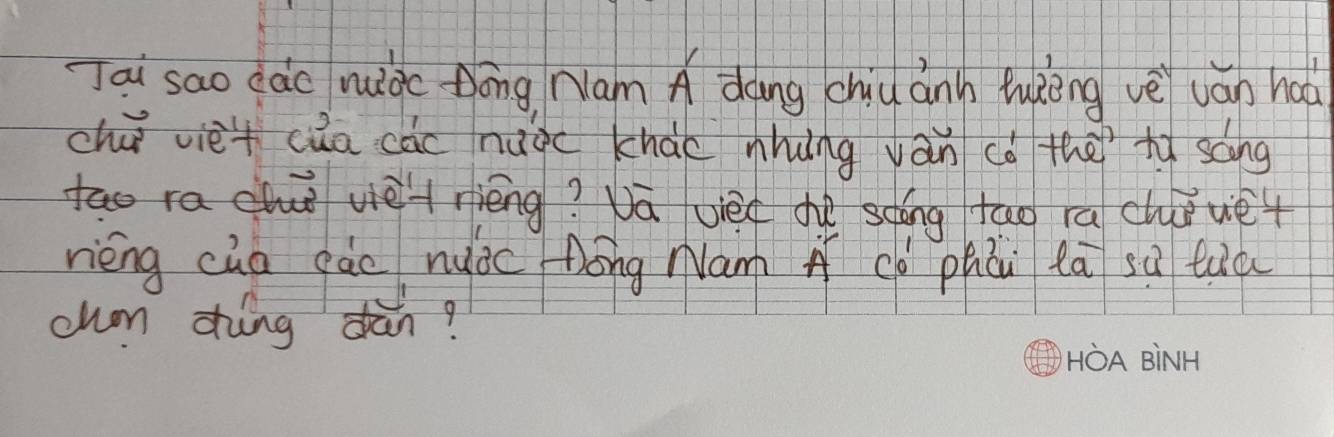 Tại sao các nước Đông Nam Á đang chịu ảnh hưởng về văn hoá
chữ viết của các nước khác nhưng vẫn có thể tự sáng
tạo ra chữ viết riêng? Và việc tự sáng tạo ra chữ viết
riêng của các nước Đông Nam Á có phải là sự lựa
chọn đúng đắn?
HÒA BÌNH